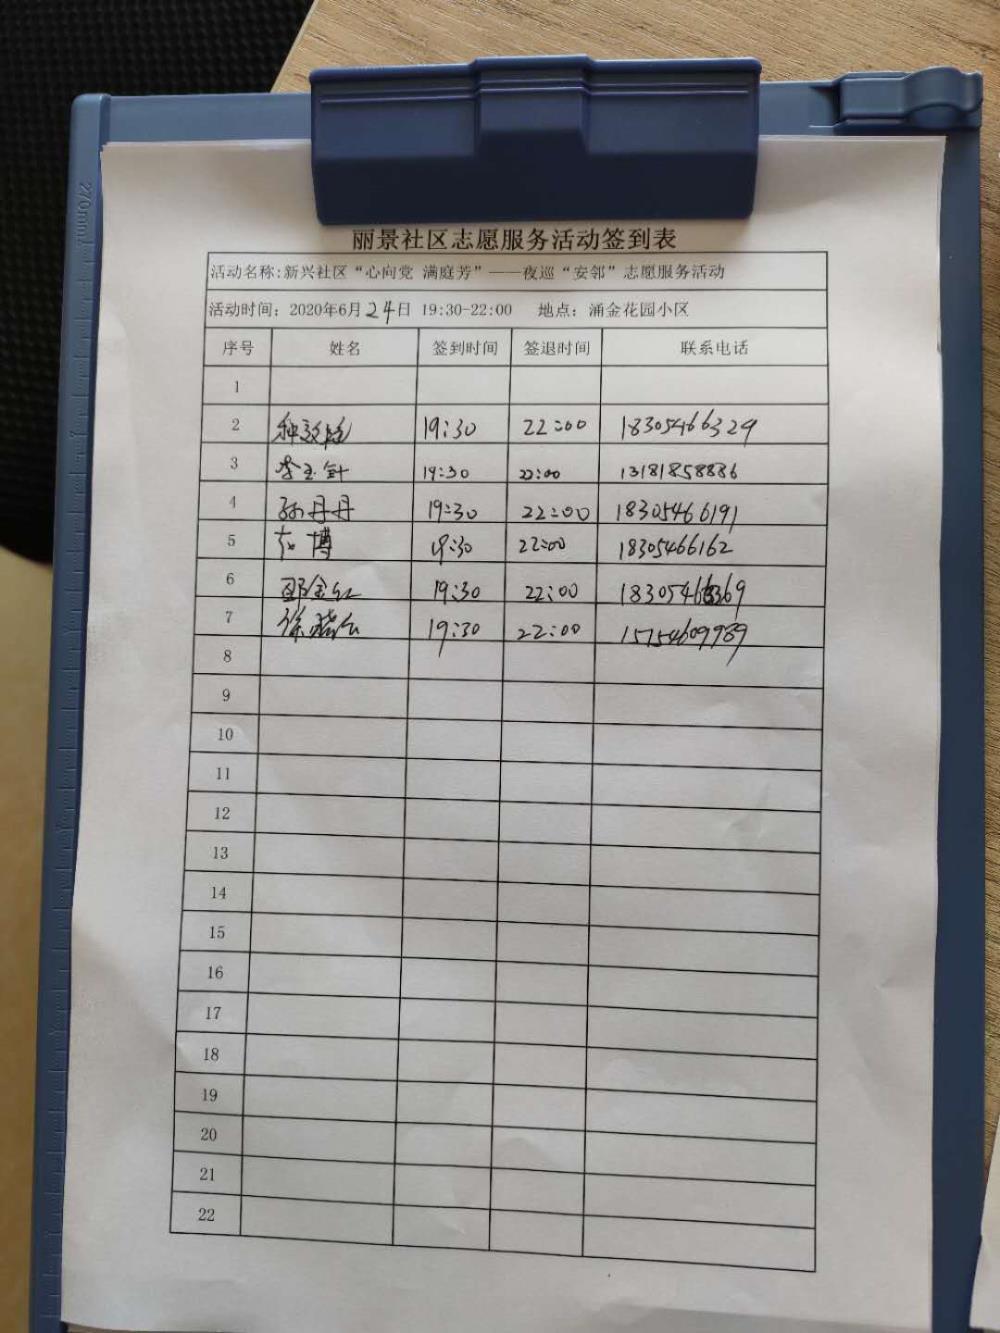 丽景社区志愿服务活动签到表
活动名称:新兴社区“心向党 满庭芳”——夜巡“安邻”志愿服务活动
活动时间：2020年6月24日 19:30-22:00 地点：涌金花园小区
序号 姓名 签到时间 签退时间 联系电话
1
2 19:30 22:00 18305466329
3 李玉针 19:30 22:00 13181858886
4 孙丹丹 19:30 22:00 18305466191
5 博 19:30 22:00 18305466162
6 邵金红 19:30 22:00
7 徐 19:30 22:00 15154609989
8
9
10
11
12
13
14
15
16
17
18
19
20
21
22
270mm